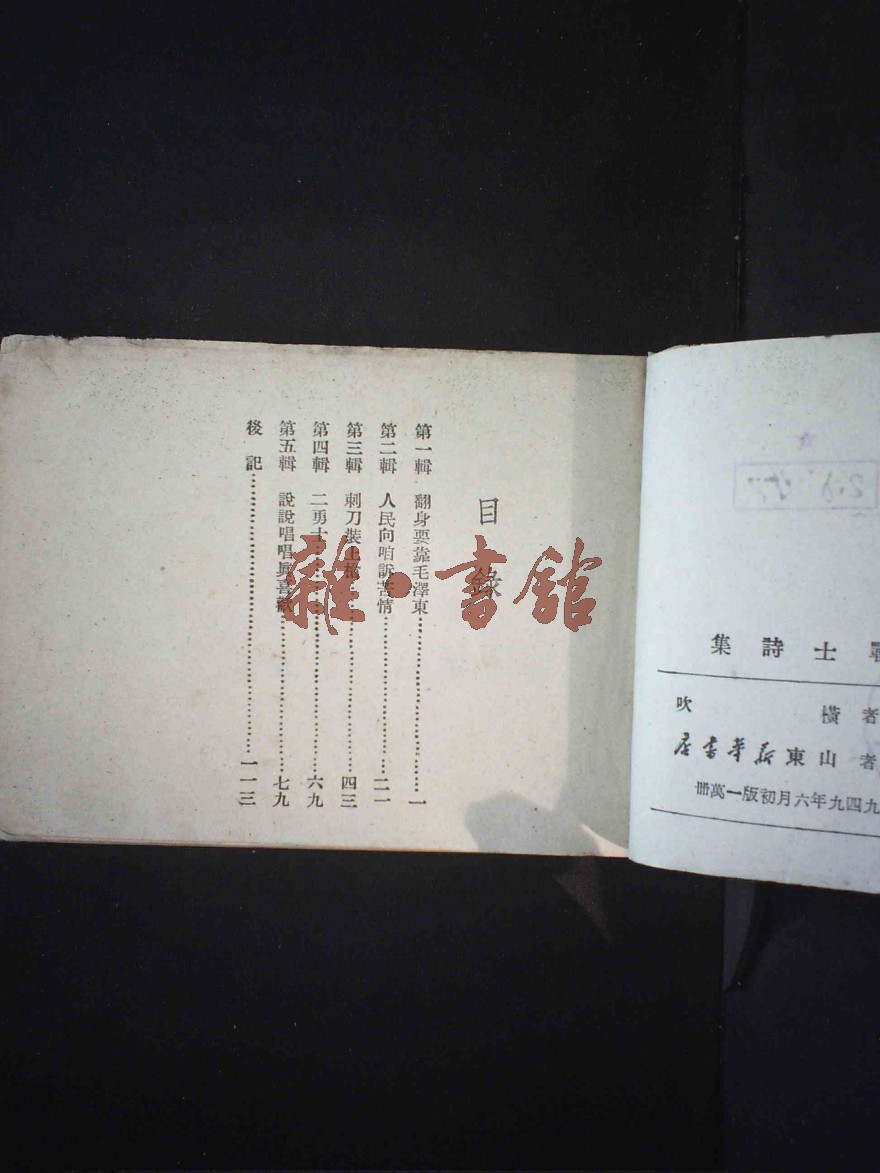 集詩士戰
吹橫者
店書華新東山者
册萬一版初月六年九四九
目錄
第一輯 翻身要靠毛澤東……一
第二輯 人民向咱訴苦情……二一
第三輯 刺刀裝上槍……四三
第四輯 二勇士……六九
第五輯 說說唱唱真喜歡……七九
後記……一一三
雜·書館